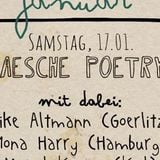 januar
SAMSTAG, 17.01.
AESCHE POETRY
mit dabei:
ike Altmann (Goerlitz
Mona Harry (Hamburg